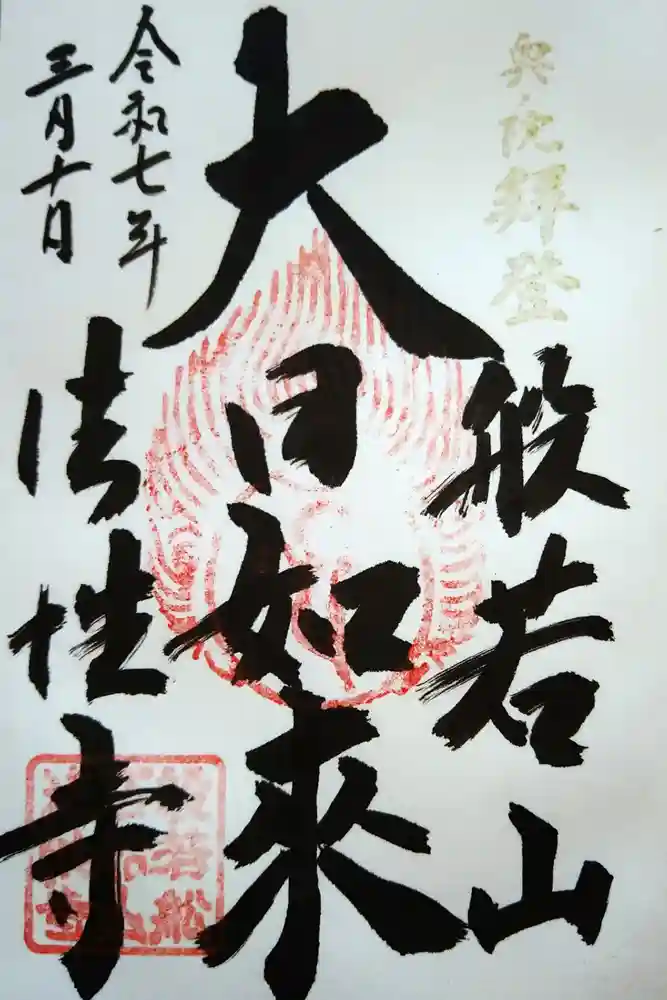 奥之院拝登
般若山
大日如来
令和七年
三月十日
法性寺